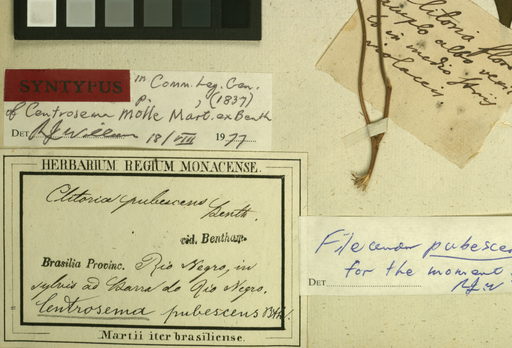 Clitoria flor
albo
in medio
violaceis
SYNTYPUS in Comm. Leg. Gen.
p. , (1837)
of Centrosema molle Mart. ex Benth
DET 18/VIII 1977
HERBARIUM REGIUM MONACENSE.
Clitoria pubescens Benth.
vid. Bentham.
Brasilia Provinc. Rio Negro, in
sylvis ad Barra do Rio Negro.
Centrosema pubescens Bth!
Martii iter brasiliense.
File under pubesce
for the moment
DET